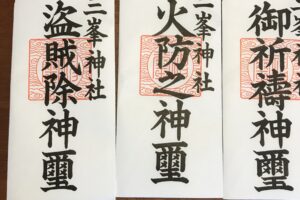 御祈禱神璽
峯神社
火防之神璽
峯神社
盗賊除神璽